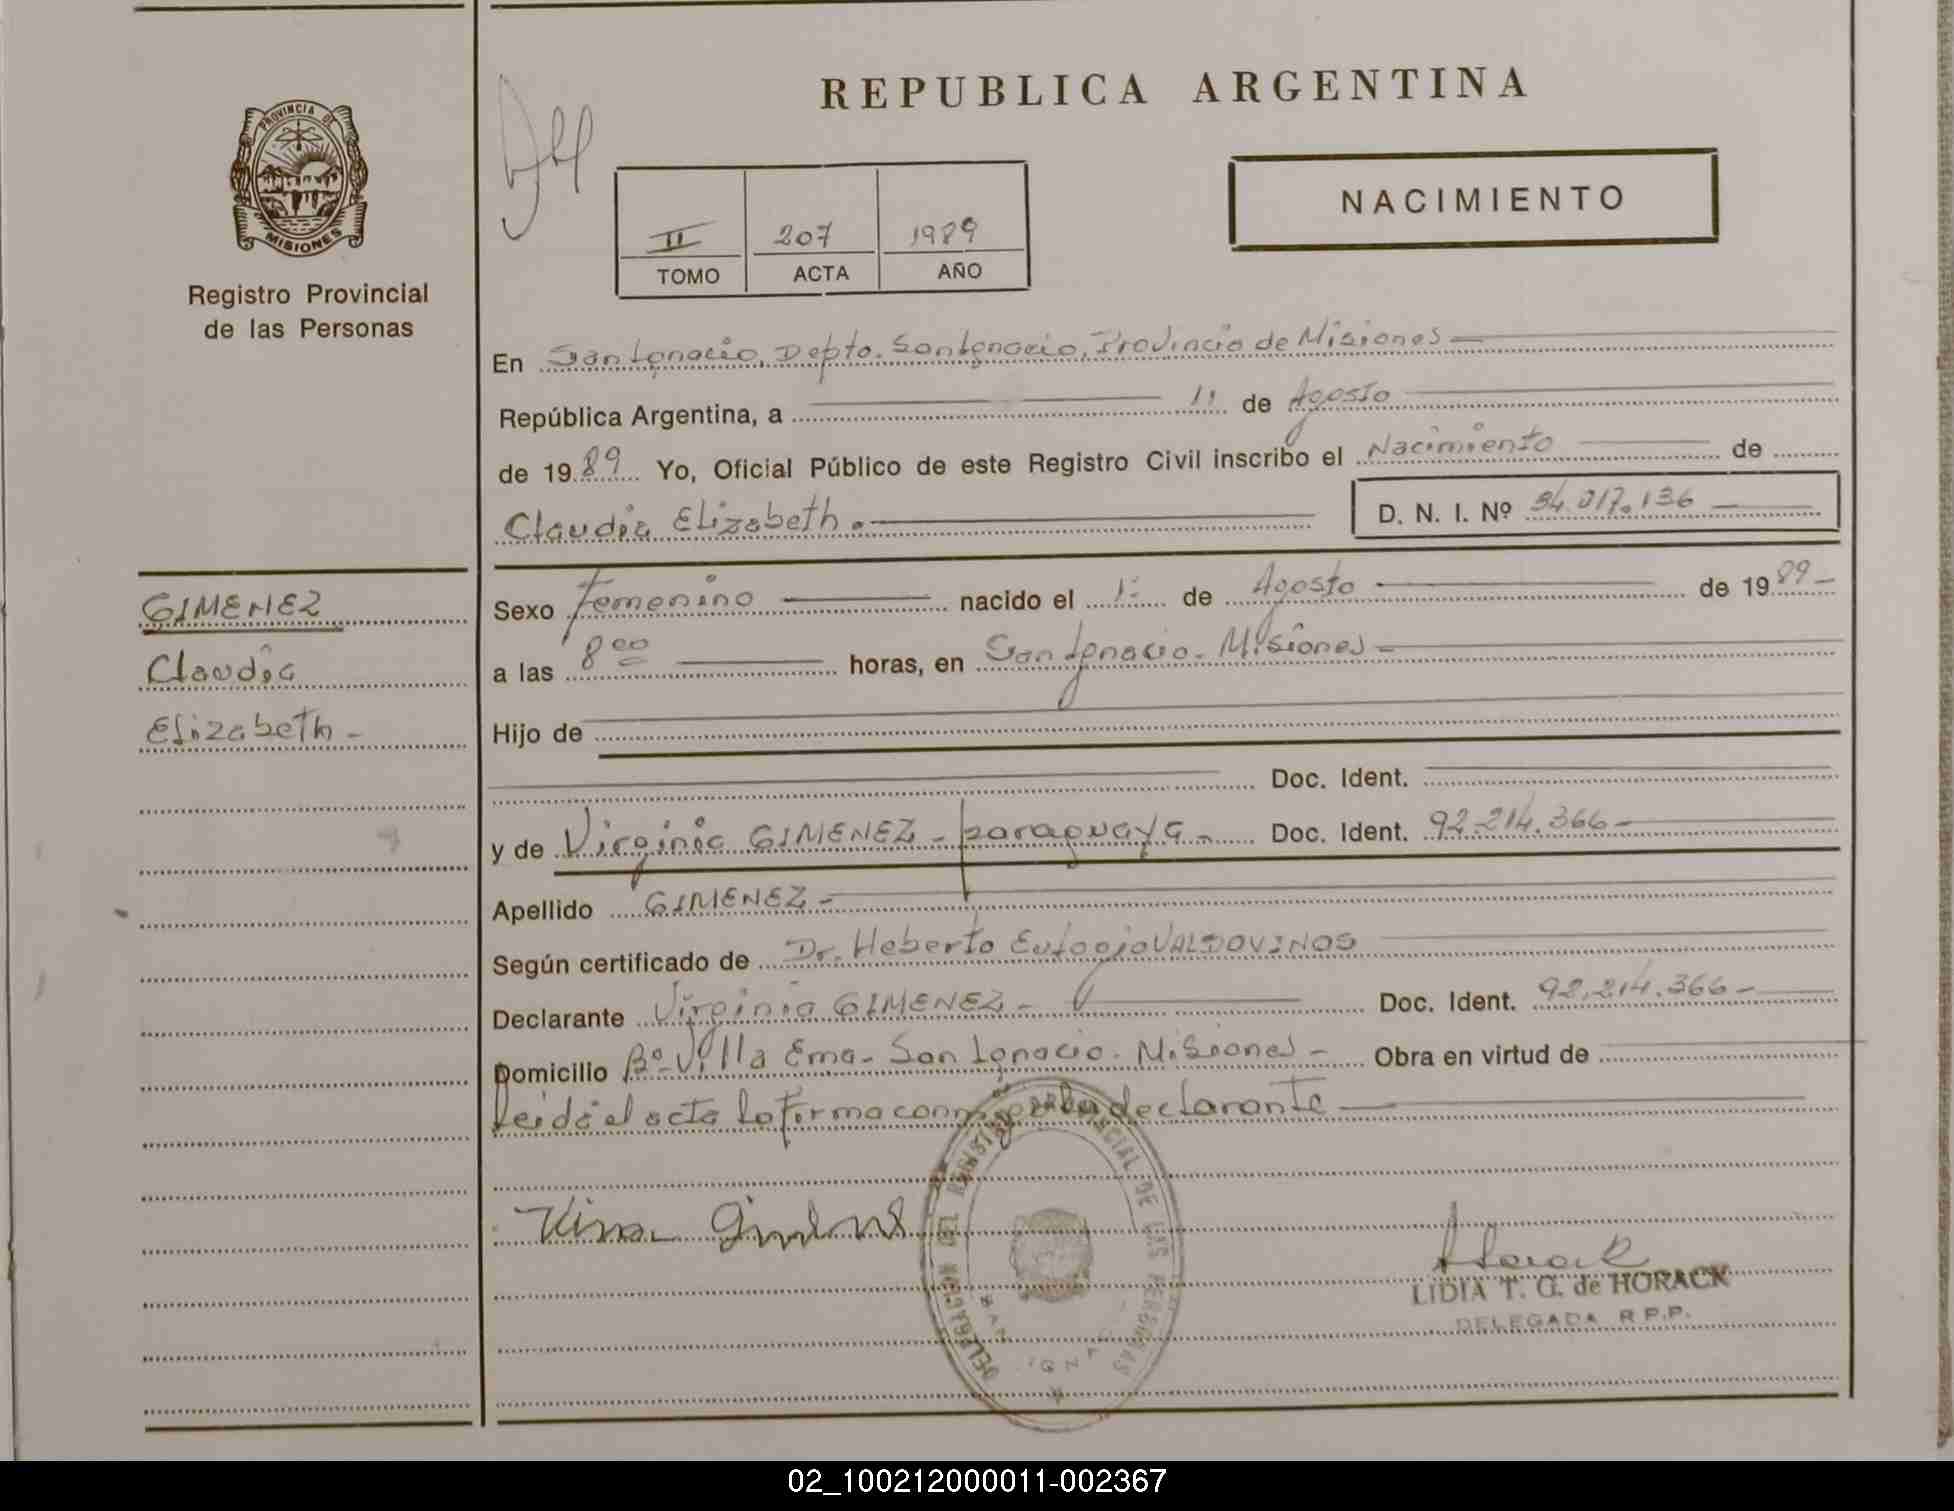 REPUBLICA ARGENTINA
NACIMIENTO
II 207 1989
TOMO ACTA AÑO
PROVINCIA DE
MISIONES
Registro Provincial
de las Personas
En San Ignacio, Depto. San Ignacio, Provincia de Misiones
República Argentina, a 11 de Agosto
de 1989 Yo, Oficial Público de este Registro Civil inscribo el Nacimiento de
Claudia Elizabeth.
D. N. I. Nº 34.017.136
GIMENEZ
Claudia
Elizabeth -
Sexo Femenino nacido el 1º de Agosto de 1989 -
a las 8 00 horas, en San Ignacio - Misiones -
Hijo de
Doc. Ident.
y de Virginia GIMENEZ - paraguaya - Doc. Ident. 92.214.366 -
Apellido GIMENEZ -
Según certificado de Dr. Heberto Eulogio VALDOVINOS
Declarante Virginia GIMENEZ - Doc. Ident. 92.214.366 -
Domicilio Bº Villa Ema - San Ignacio - Misiones - Obra en virtud de
Leida el acta la firma conmigo la declarante
DELEGACION DEL REGISTRO PROVINCIAL DE LAS PERSONAS
SAN IGNACIO
Horack
LIDIA T. G. de HORACK
DELEGADA R.P.P.
02_100212000011-002367